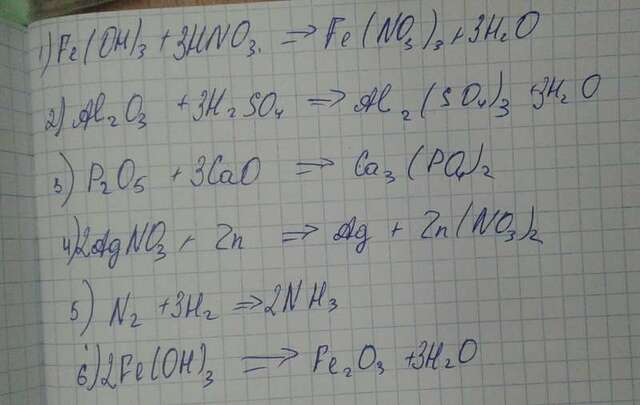 1) Fe(OH)3 + 3HNO3. ⇒ Fe(NO3)3 + 3H2O
2) Al2O3 + 3H2SO4 ⇒ Al2(SO4)3 + 3H2O
3) P2O5 + 3CaO ⇒ Ca3(PO4)2
4) 2AgNO3 + Zn ⇒ Ag + Zn(NO3)2
5) N2 + 3H2 ⇒ 2NH3
6) 2Fe(OH)3 ⇒ Fe2O3 + 3H2O